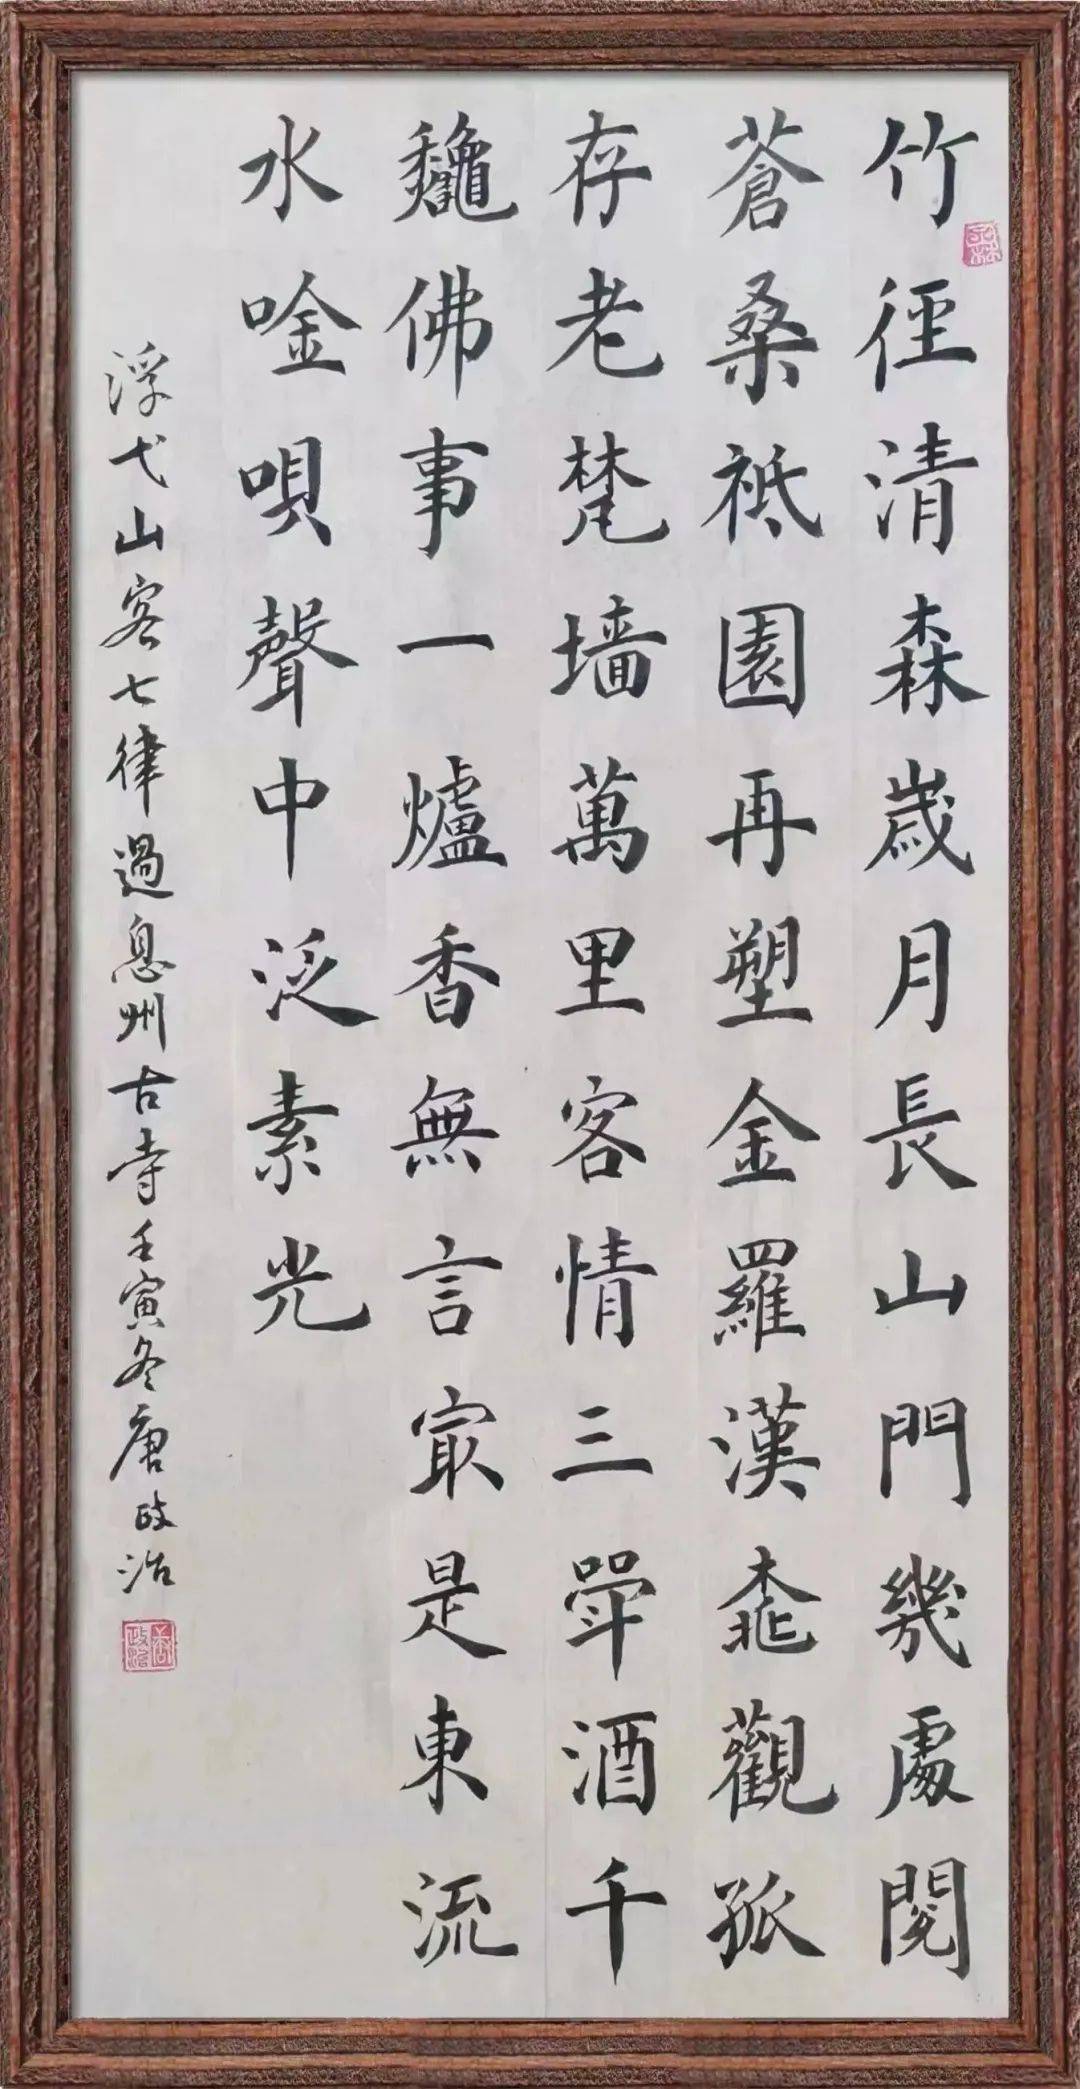 竹徑清森歲月長山門幾處閱
蒼桑祗園再塑金羅漢桃觀孤
存老梵墙萬里客情三斝酒千
龝佛事一爐香無言冣是東流
水唫唄聲中泛素光
浮弋山客七律過息州古寺壬寅冬唐政治